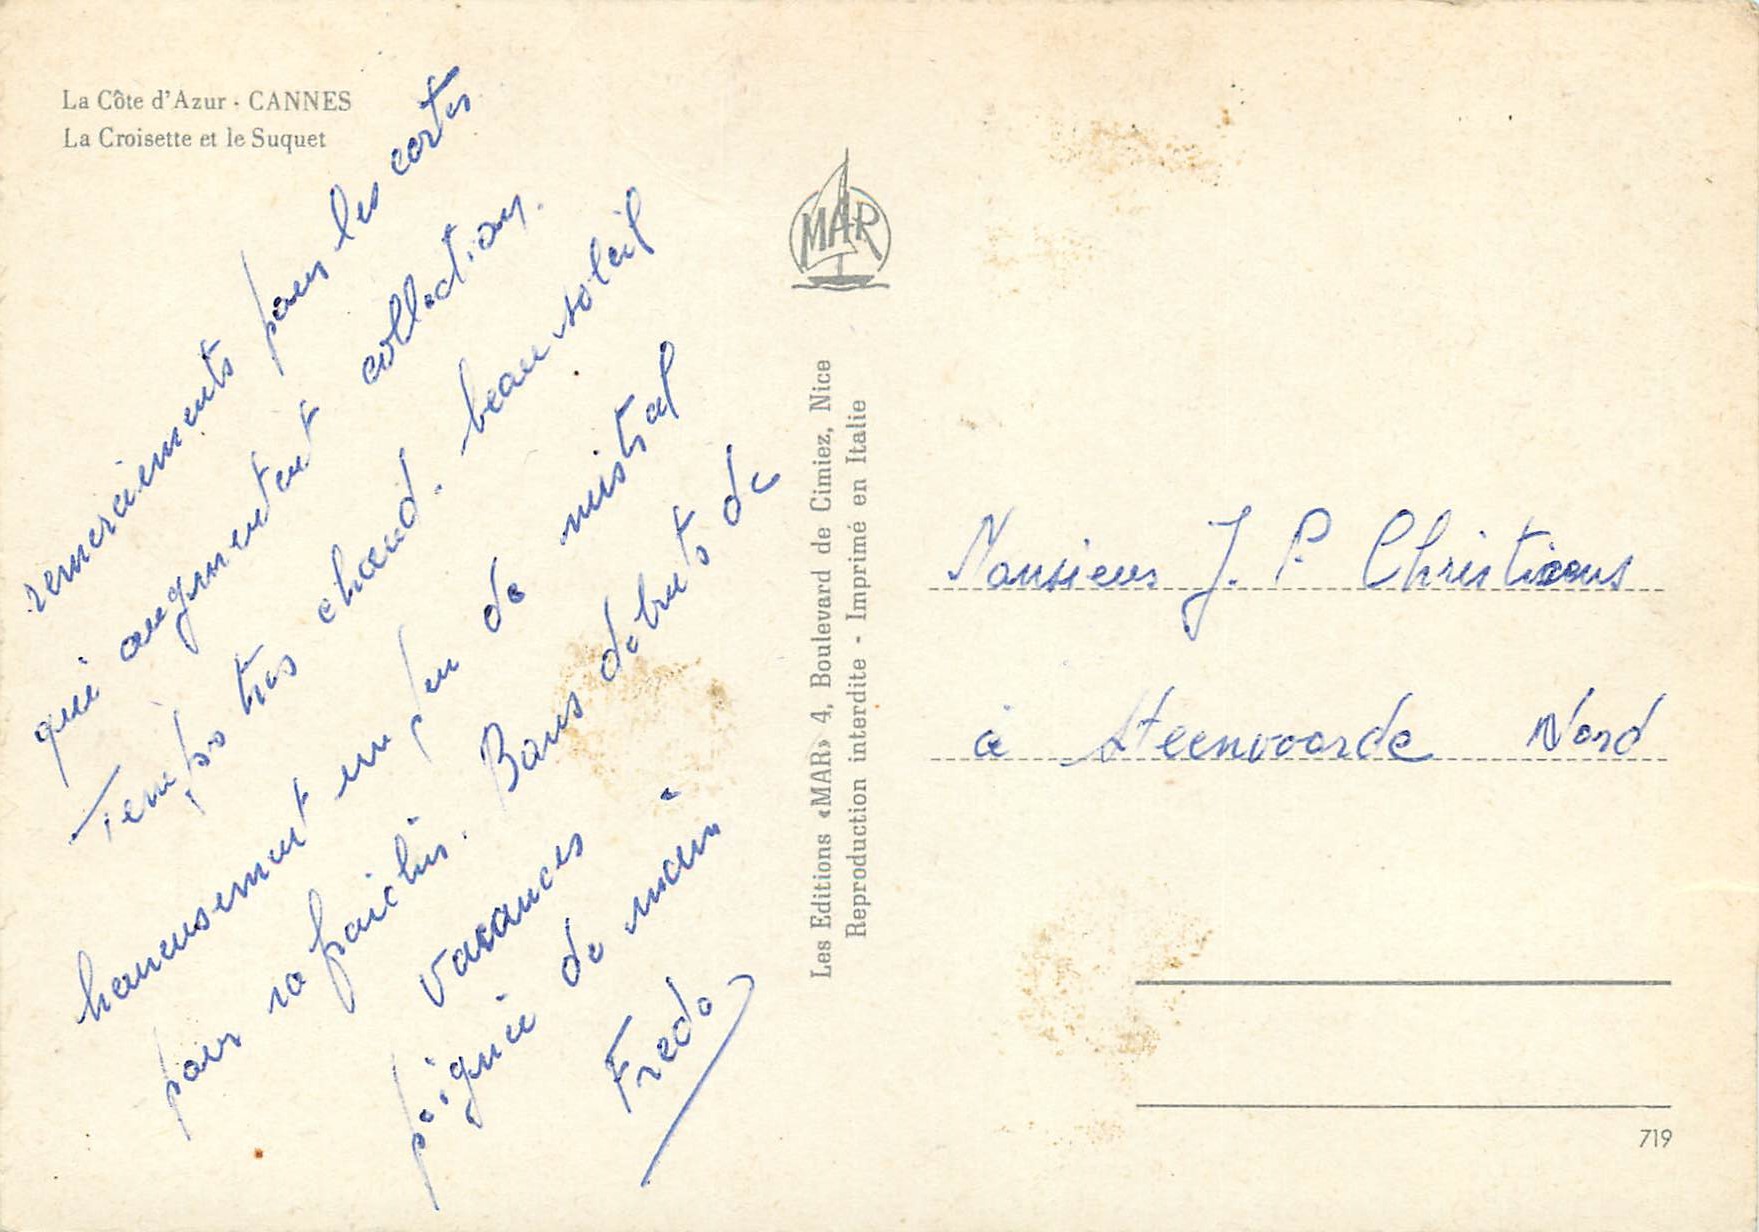 La Côte d'Azur - CANNES
La Croisette et le Suquet
remerciements pour les cartes
qui augmentent collection.
Temps très chaud. beau soleil
heureusement un peu de mistral
pour rafraichir. Bons debuts de
vacances
poignée de main
Fredo
MAR
Les Editions «MAR» 4, Boulevard de Cimiez, Nice
Reproduction interdite - Imprimé en Italie
Monsieur J. P. Christiaens
à Steenvoorde Nord
719